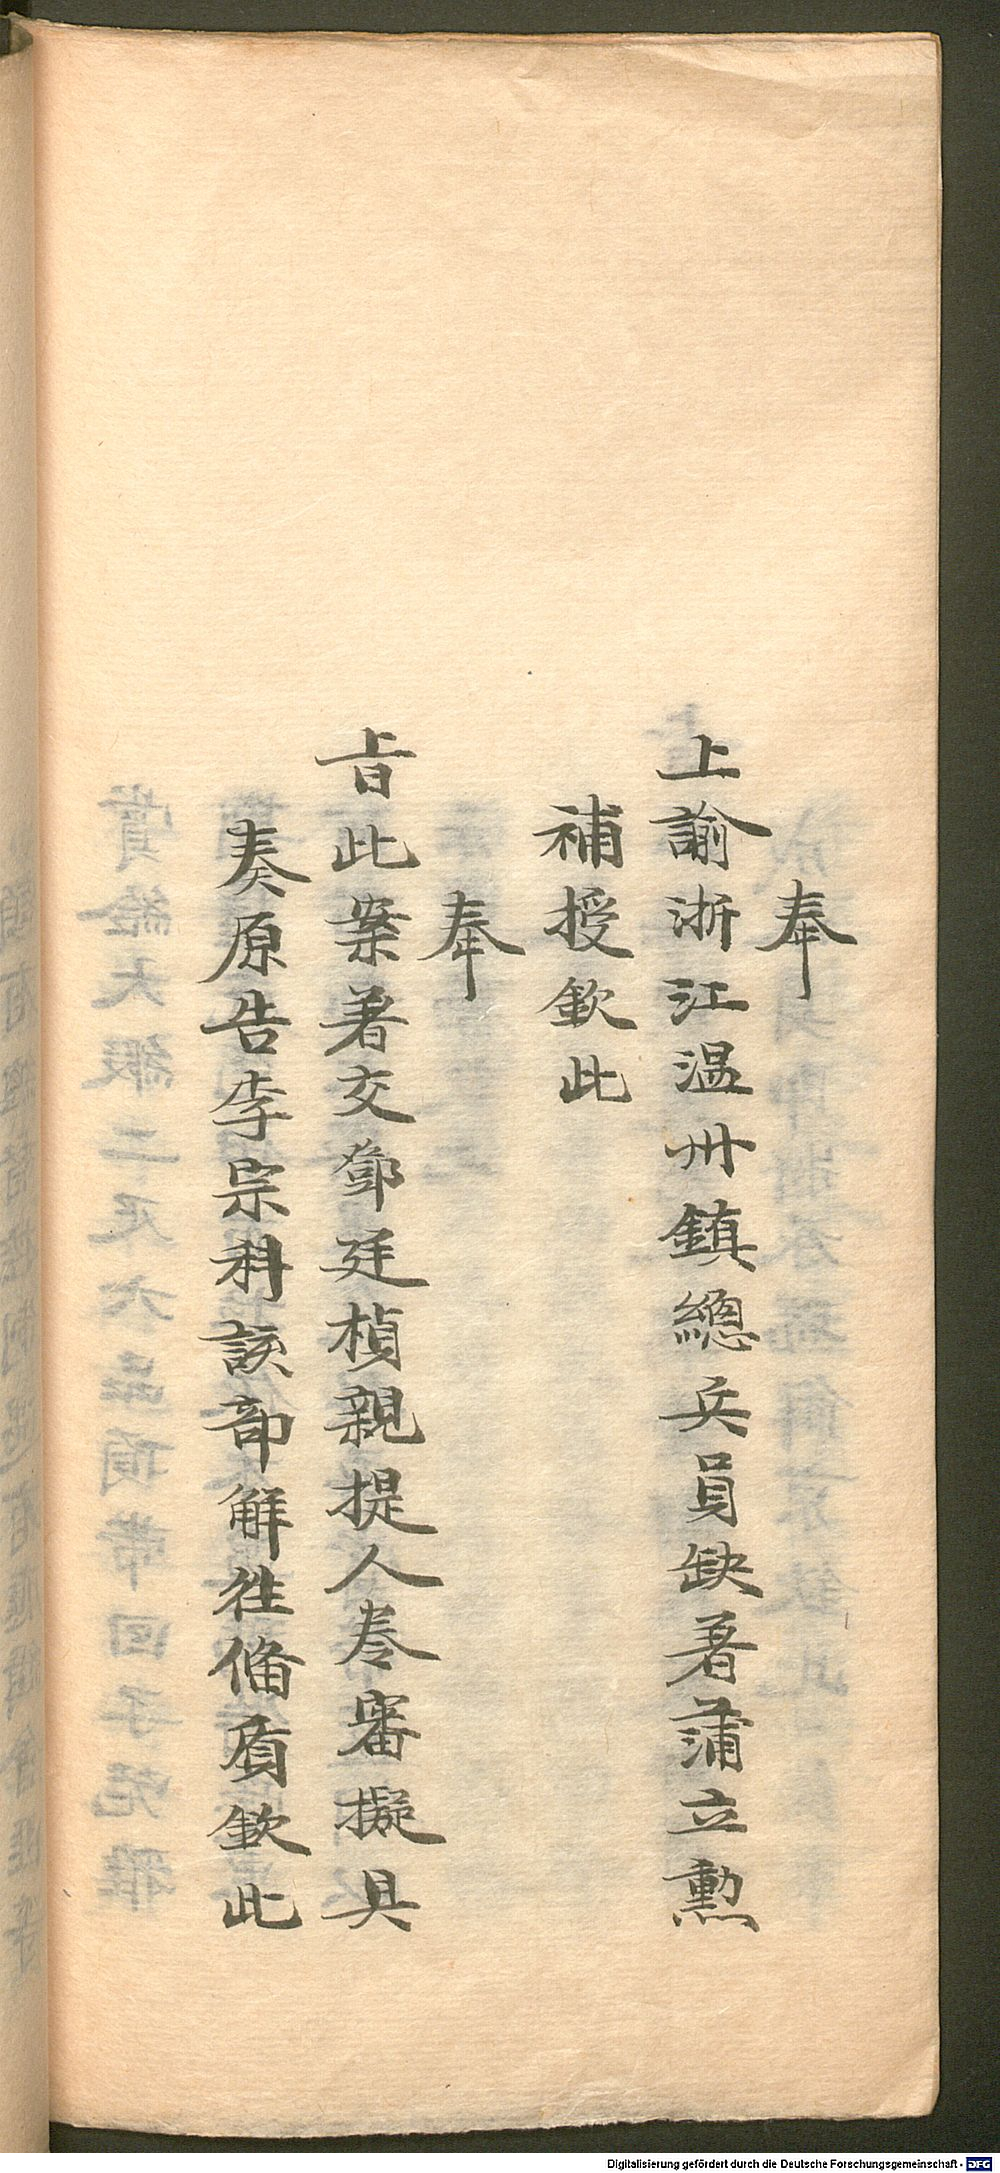 奉
上諭浙江温州鎮總兵員缺著蒲立勳
補授欽此
奉
旨此案著交鄧廷楨親提人卷審擬具
奏原告李宗科該部解徃俻質欽此
Digitalisierung gefördert durch die Deutsche Forschungsgemeinschaft - DFG